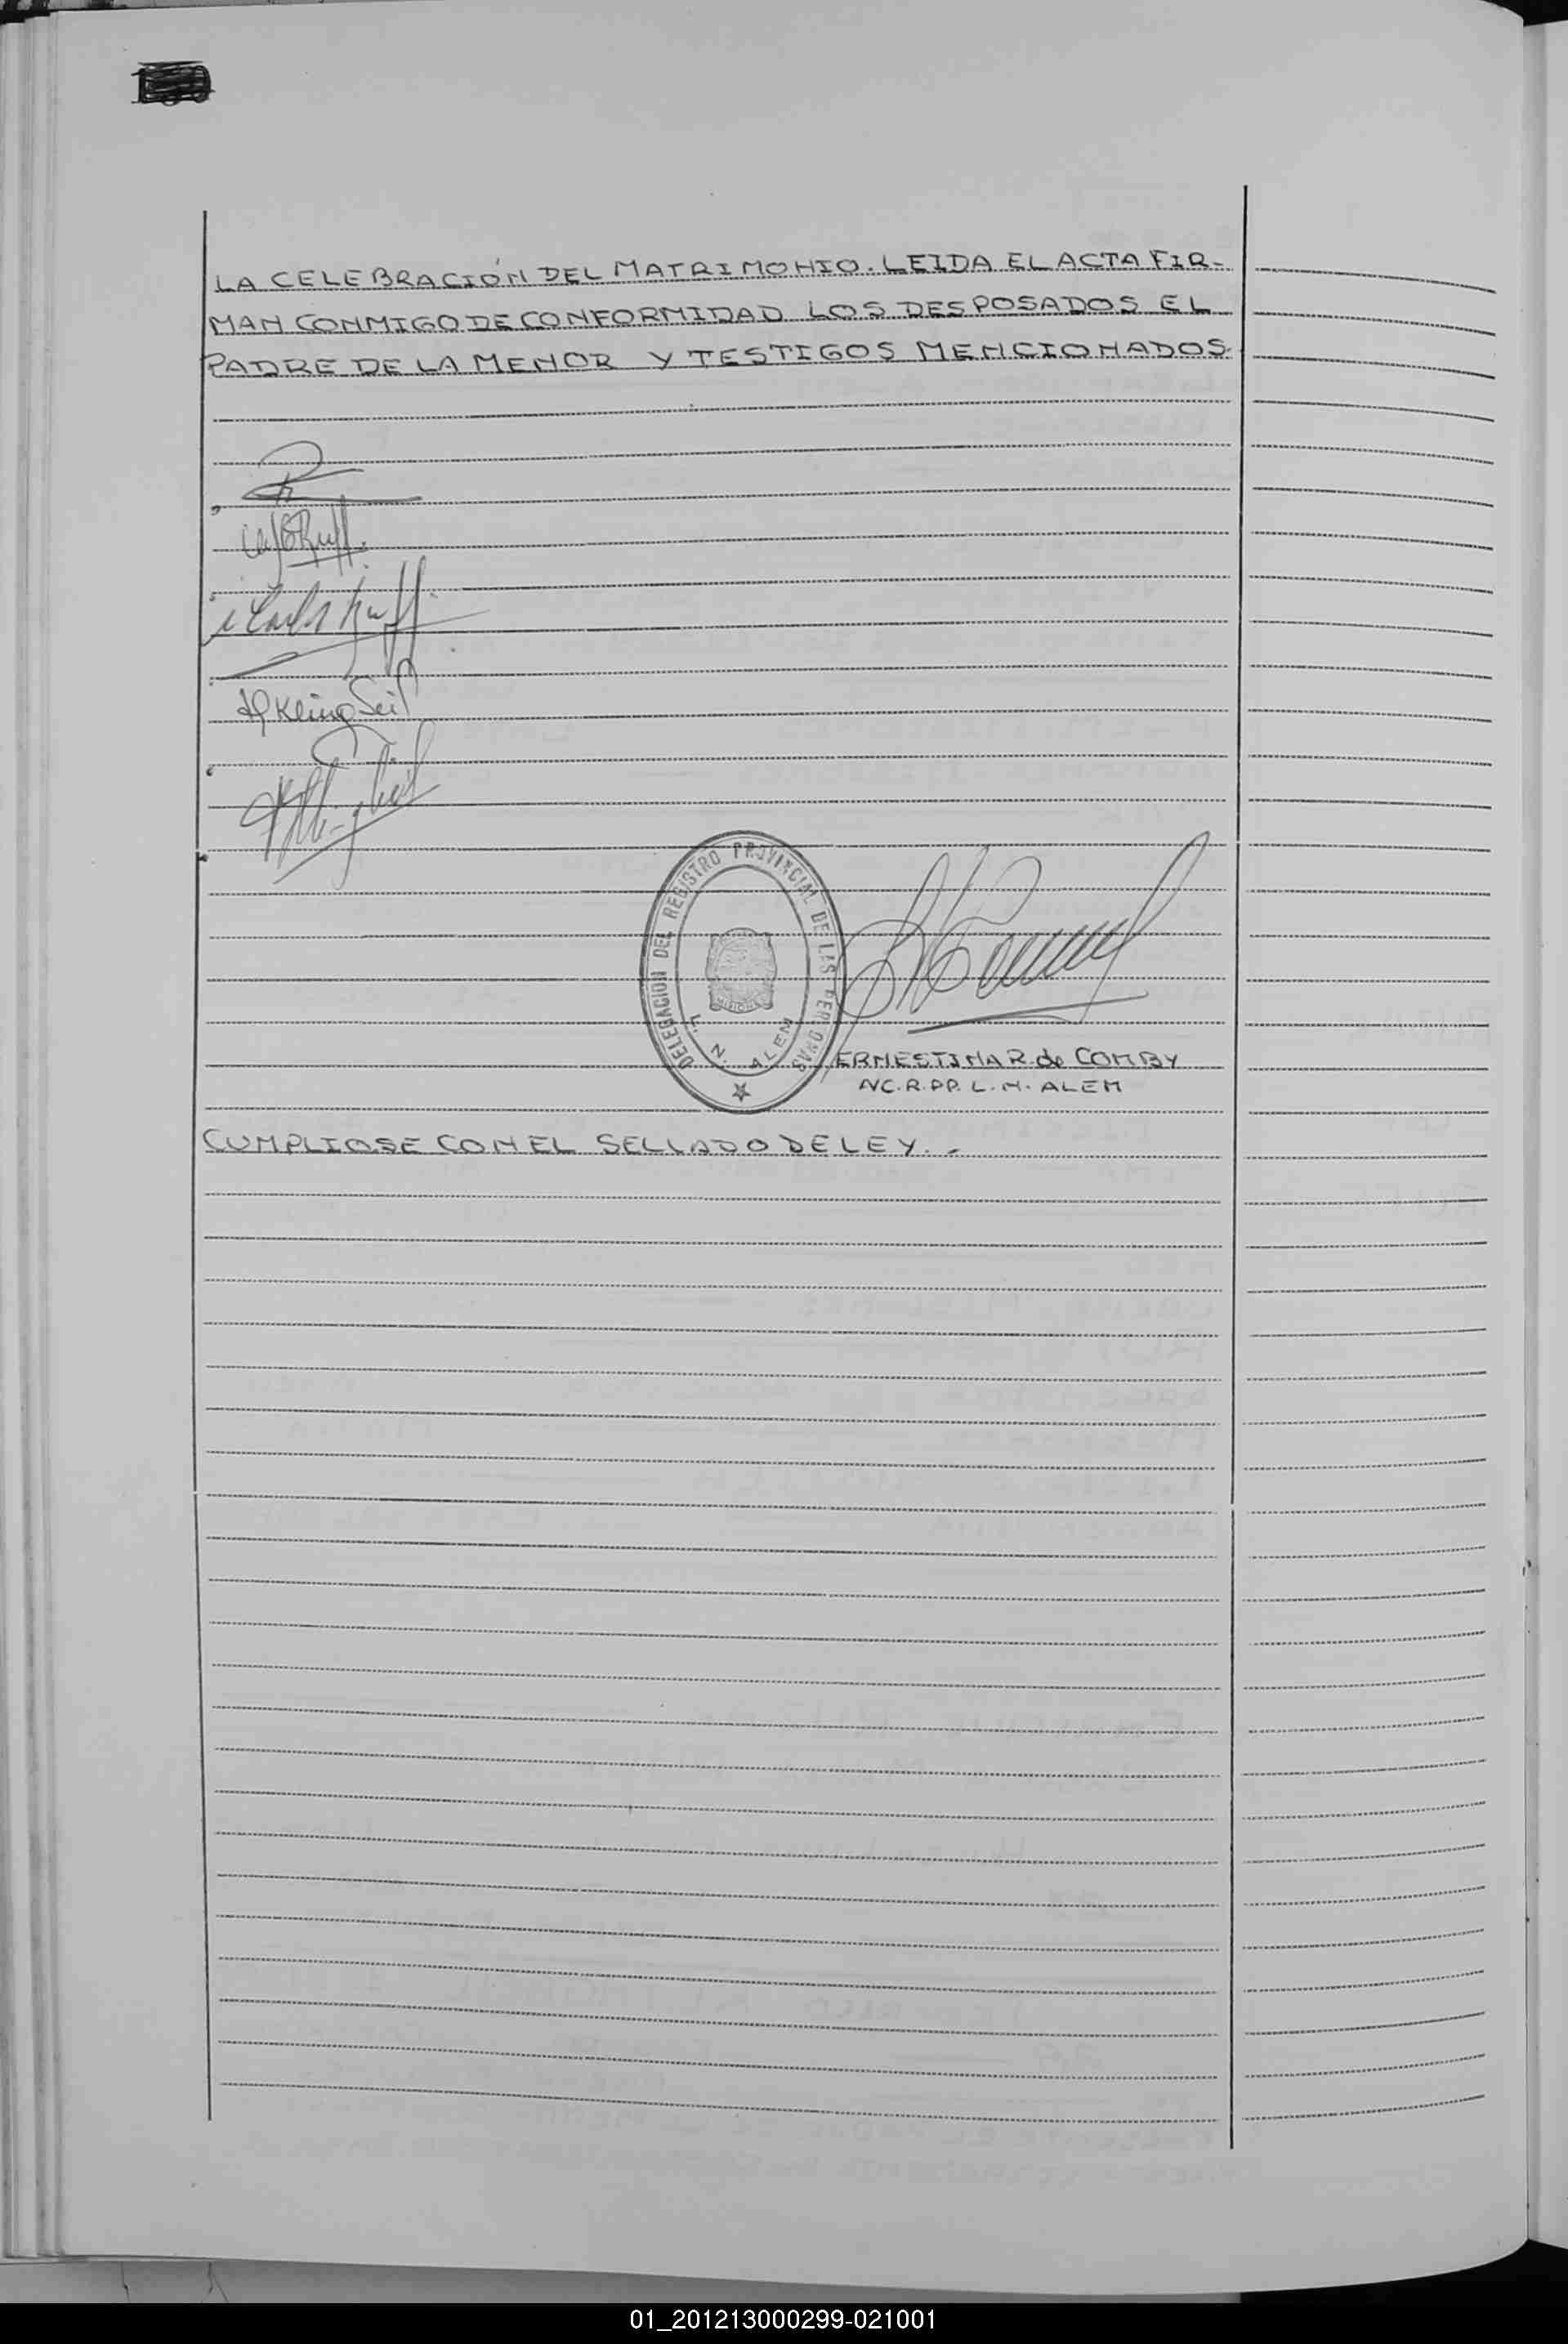 LA CELEBRACIÓN DEL MATRIMONIO. LEIDA EL ACTA FIR-
MAN CONMIGO DE CONFORMIDAD LOS DESPOSADOS EL
PADRE DE LA MENOR Y TESTIGOS MENCIONADOS
Klingbeil
DELEGACION DEL REGISTRO PROVINCIAL DE LAS PERSONAS
MISIONES
L. N. ALEM
ERNESTINA R. de COMBY
L. N. ALEM
CUMPLIOSE CON EL SELLADO DE LEY. -
01_201213000299-021001